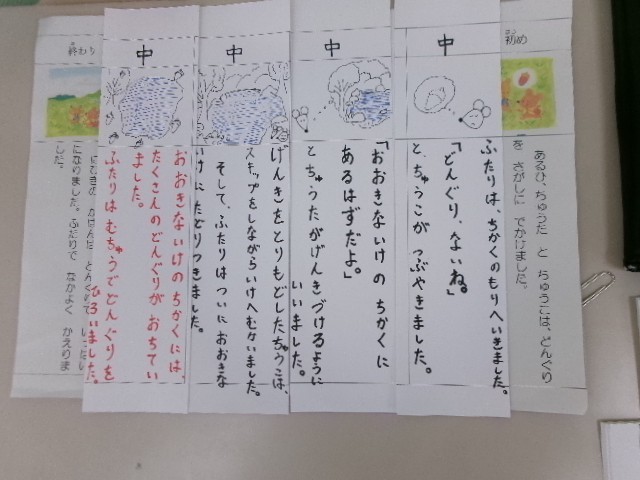 初め
はじ
あるひ、ちゅうた と ちゅうこは、どんぐり
を さがしに でかけました。
中
ふたりは、ちかくのもりへいきました。
「どんぐり、ないね。」
と、ちゅうこが つぶやきました。
中
「おおきないけの ちかくに
あるはずだよ。」
とちゅうたがげんきづけるように
いいました。
中
げんきをとりもどしたちゅうこは、
スキップをしながらいけへむかいました。
そして、ふたりはついに おおきな
いけに たどりつきました。
中
おおきないけの ちかくには、
たくさんのどんぐりが おちてい
ました。
ふたりはむちゅうでどんぐりを
ひろいました。
終わり
かばんは どんぐりで
になりました。ふたりで なかよく かえりま
した。